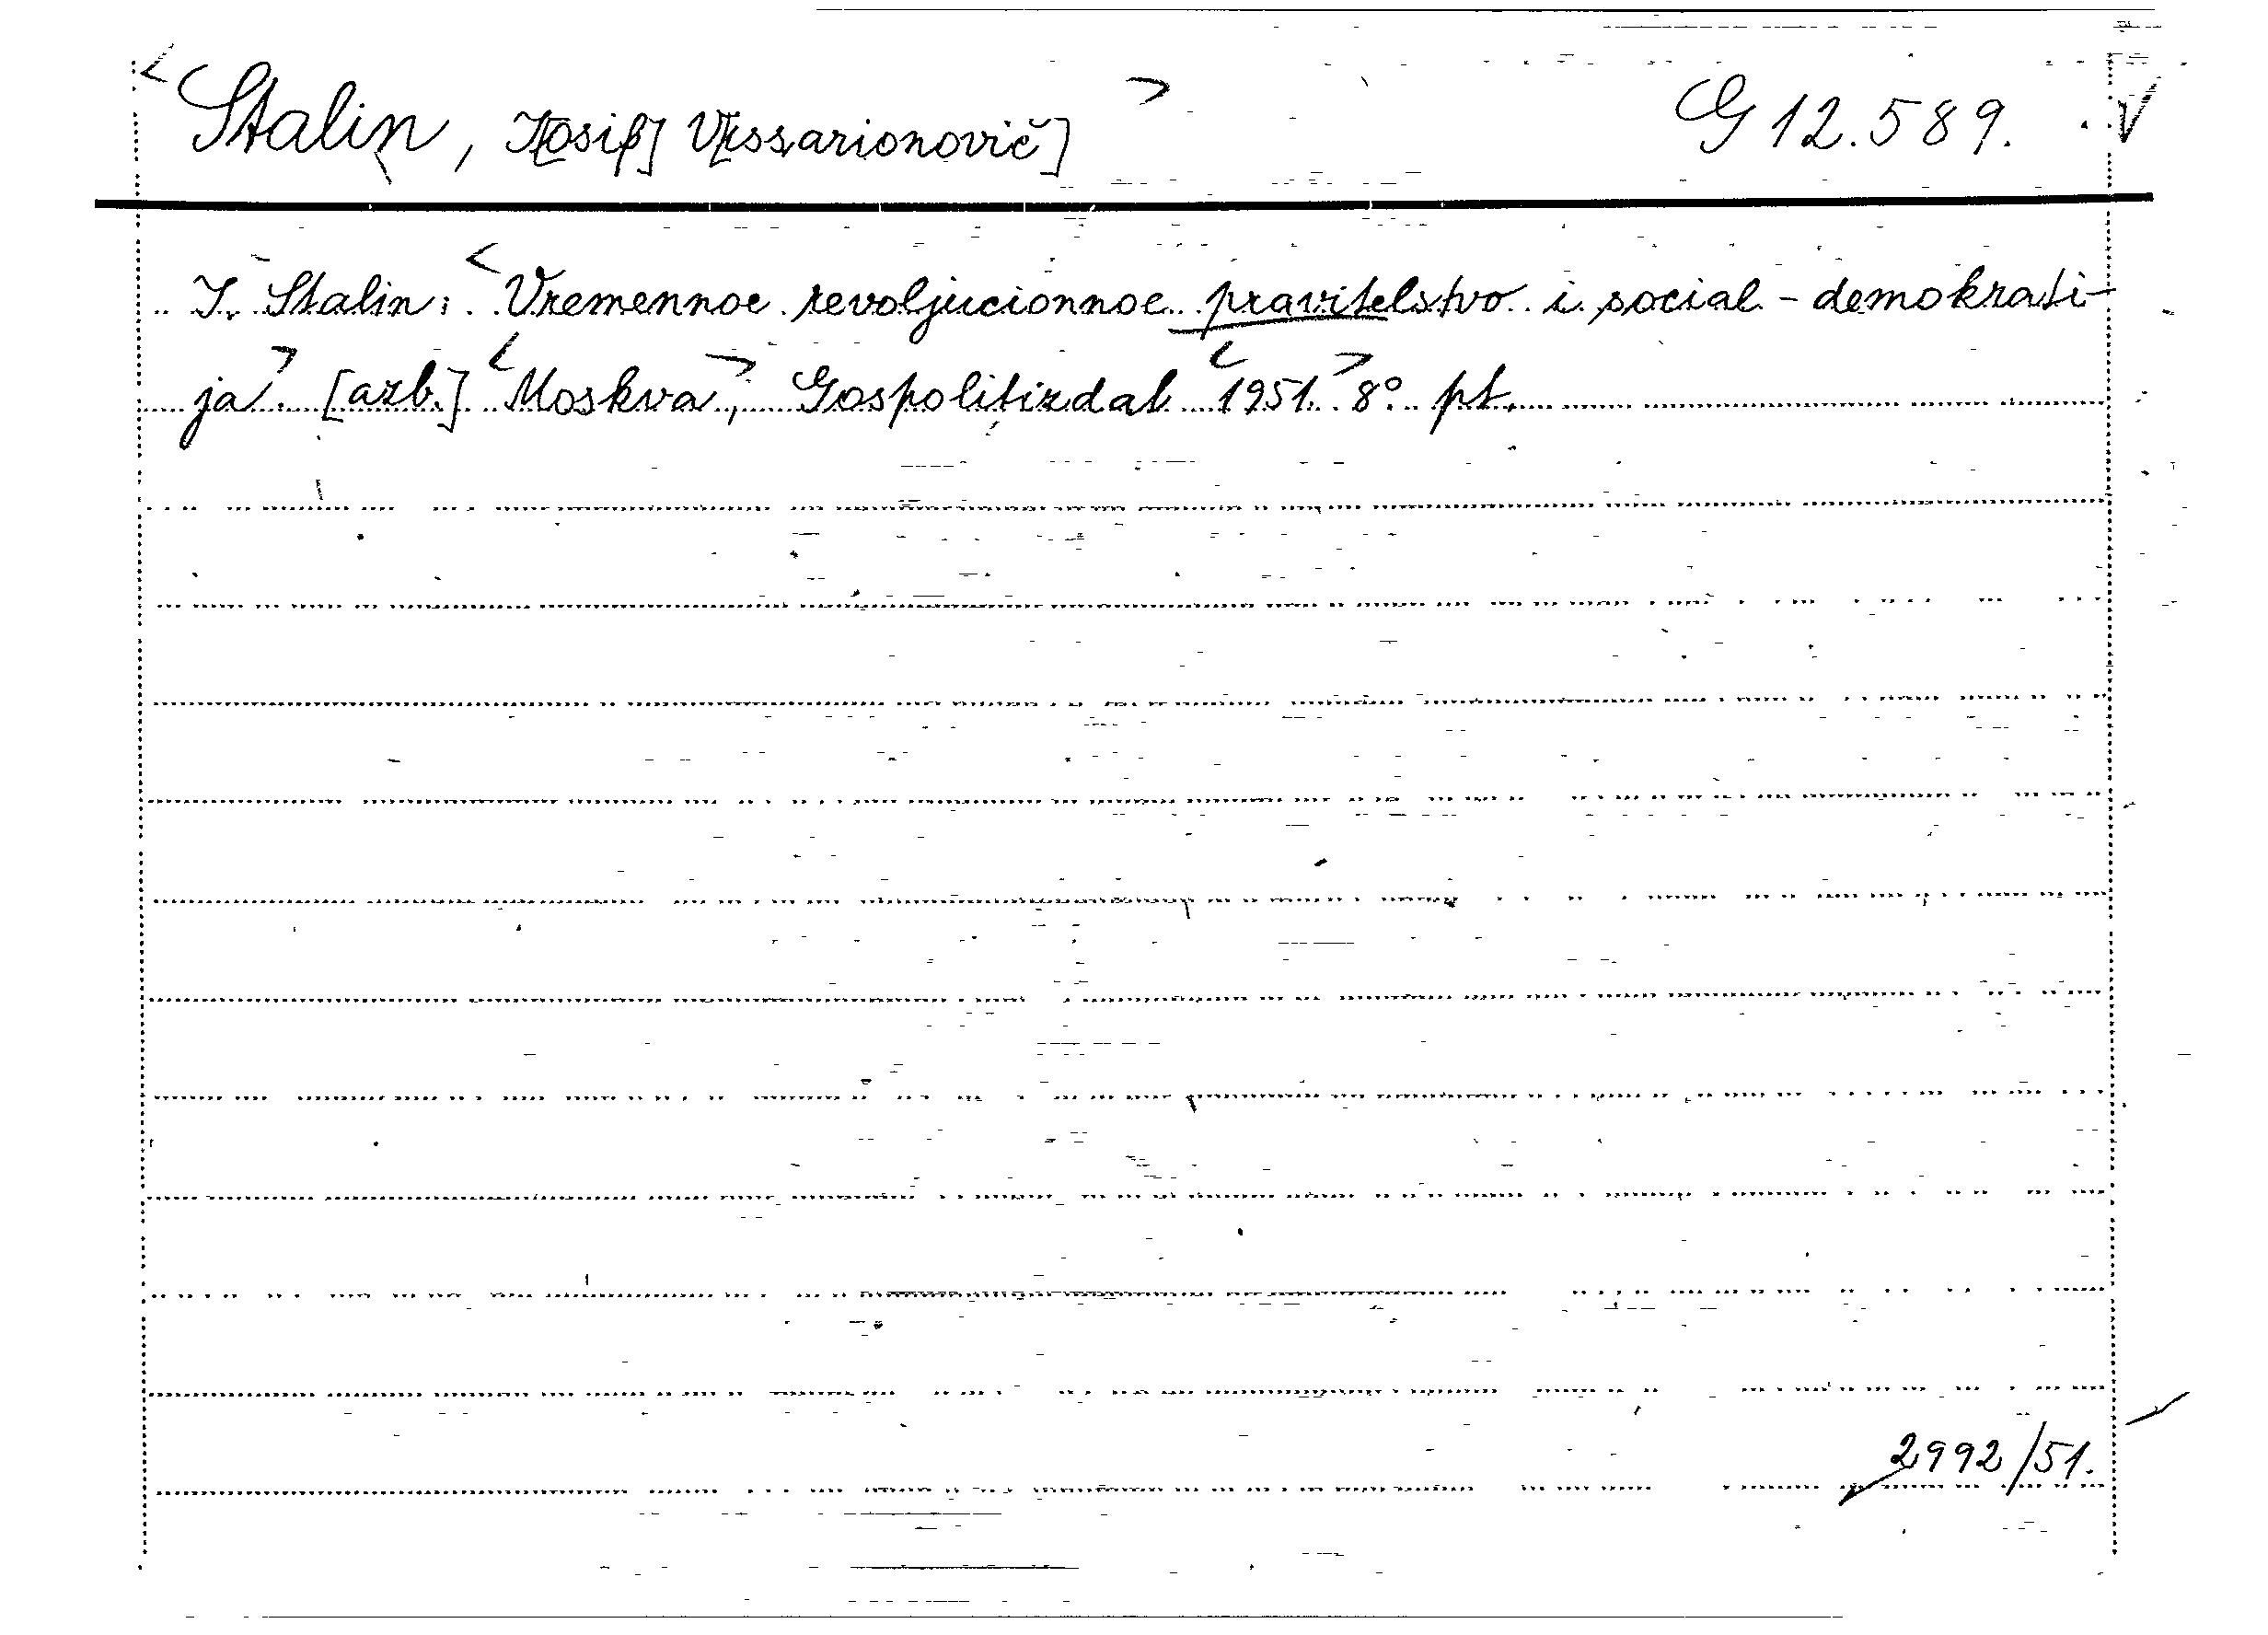 <Stalin, I[osif] V[issarionovič]> G 12.589. V
I. Stalin: <Vremennoe revoljucionnoe pravitelstvo i social-demokrati-
ja>. [azb.] <Moskva>, Gospolitizdat <1951.> 8° pt.
2992/51.